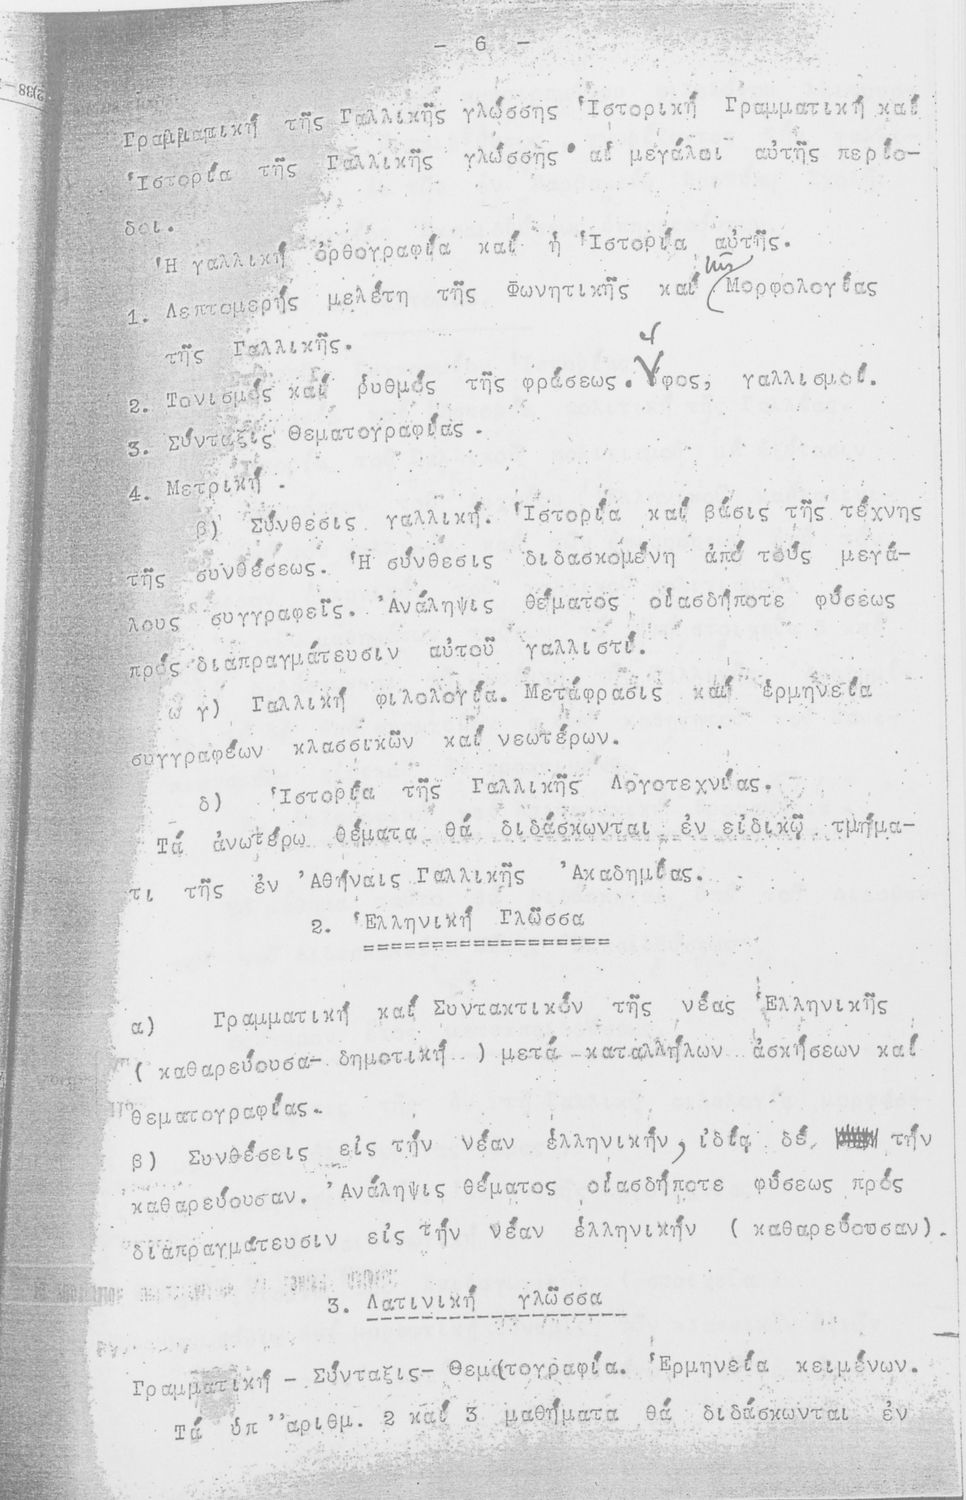 - 6 -
Γραμματική τῆς Γαλλικῆς γλώσσης Ἱστορική Γραμματική καί
Ἱστορία τῆς Γαλλικῆς γλώσσης· αἱ μεγάλαι αὐτῆς περίο-
δοι.
Ἡ γαλλική ὀρθογραφία καί ἡ Ἱστορία αὐτῆς.
1. Λεπτομερής μελέτη τῆς Φωνητικῆς καί τῆς Μορφολογίας
τῆς Γαλλικῆς.
2. Τονισμός καί ρυθμός τῆς φράσεως. Ὕφος, γαλλισμοί.
3. Σύνταξις Θεματογραφίας.
4. Μετρική.
β) Σύνθεσις γαλλική. Ἱστορία καί βάσις τῆς τέχνης
τῆς συνθέσεως. Ἡ σύνθεσις διδασκομένη ἀπό τούς μεγά-
λους συγγραφεῖς. Ἀνάληψις θέματος οἱασδήποτε φύσεως
πρός διαπραγμάτευσιν αὐτοῦ γαλλιστί.
γ) Γαλλική φιλολογία. Μετάφρασις καί ἑρμηνεία
συγγραφέων κλασσικῶν καί νεωτέρων.
δ) Ἱστορία τῆς Γαλλικῆς Λογοτεχνίας.
Τά ἀνωτέρω θέματα θά διδάσκωνται ἐν εἰδικῷ τμήμα-
τι τῆς ἐν Ἀθήναις Γαλλικῆς Ἀκαδημίας.
2. Ἑλληνική Γλῶσσα
α) Γραμματική καί Συντακτικόν τῆς νέας Ἑλληνικῆς
( καθαρεύουσα- δημοτική ) μετά καταλλήλων ἀσκήσεων καί
θεματογραφίας.
β) Συνθέσεις εἰς τήν νέαν ἑλληνικήν, ἰδίᾳ δέ τήν
καθαρεύουσαν. Ἀνάληψις θέματος οἱασδήποτε φύσεως πρός
διαπραγμάτευσιν εἰς τήν νέαν ἑλληνικήν ( καθαρεύουσαν).
3. Λατινική γλῶσσα
Γραμματική - Σύνταξις- Θεματογραφία. Ἑρμηνεία κειμένων.
Τά ὑπ' ἀριθμ. 2 καί 3 μαθήματα θά διδάσκωνται ἐν